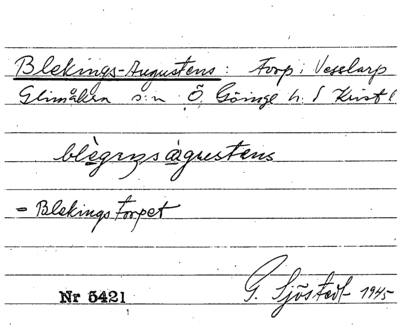 Blekings-Augustens: Torp i Vesslarp
Glimåkra s:n Ö. Göinge h. Krist l
blègŋsàgustens
= Blekingstorpet
Nr 5421 G. Sjöstedt 1945